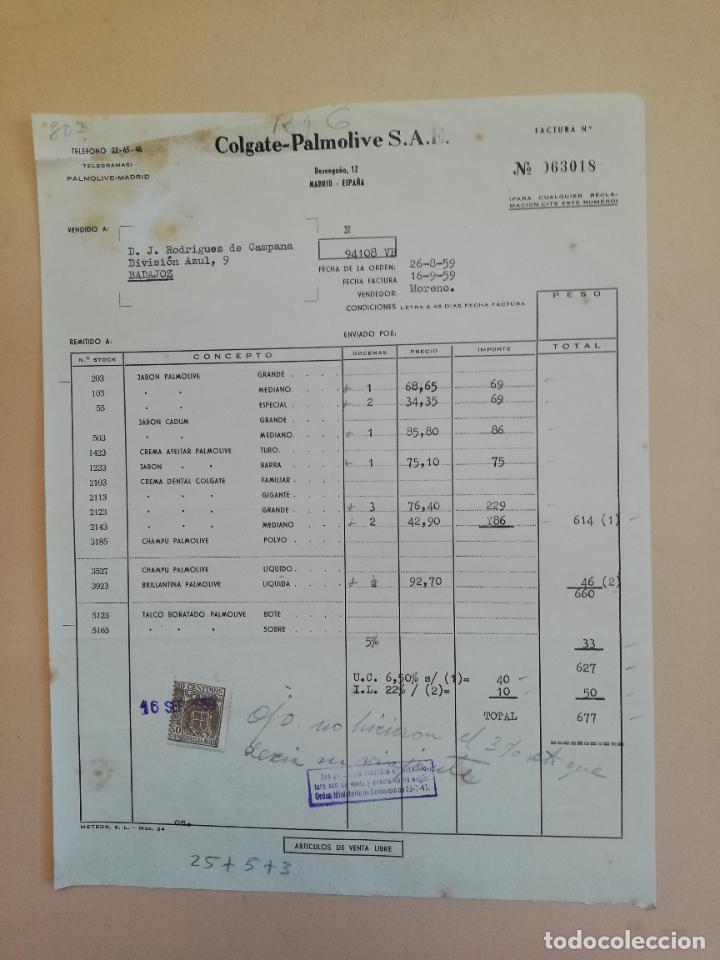 80
R + G
TELEFONO 22-65-46
TELEGRAMAS:
PALMOLIVE-MADRID
Colgate-Palmolive S.A.E.
Desengaño, 12
MADRID - ESPAÑA
FACTURA Nº
Nº 063018
(PARA CUALQUIER RECLA-
MACION CITE ESTE NUMERO)
VENDIDO A:
D. J. Rodriguez de Campana
División Azul, 9
BADAJOZ
N
94108 VB
FECHA DE LA ORDEN: 26-8-59
FECHA FACTURA 16-9-59
VENDEDOR: Moreno.
CONDICIONES LETRA A 45 DIAS FECHA FACTURA
PESO
REMITIDO A:
ENVIADO POR:
N.º STOCK CONCEPTO DOCENAS PRECIO IMPORTE TOTAL
203 JABON PALMOLIVE GRANDE . . . .
103 " " MEDIANO . . . . 1 68,65 69
55 " " ESPECIAL . . . . 2 34,35 69
JABON CADUM GRANDE . . . .
503 " " MEDIANO . . . . 1 85,80 86
1423 CREMA AFEITAR PALMOLIVE TUBO. . . . .
1233 JABON " " BARRA . . . . 1 75,10 75
2103 CREMA DENTAL COLGATE FAMILIAR . . . .
2113 " " " GIGANTE . . . .
2123 " " " GRANDE . . . . 3 76,40 229
2143 " " " MEDIANO . . . . 2 42,90 86 614 (1)
3185 CHAMPU PALMOLIVE POLVO . . . .
3527 CHAMPU PALMOLIVE LIQUIDO . . . .
3923 BRILLANTINA PALMOLIVE LIQUIDA . . . . ½ 92,70 46 (2)
660
5123 TALCO BORATADO PALMOLIVE BOTE . . . .
5165 " " " SOBRE . . . .
5% 33
627
U.C. 6,50% s/ (1)= 40
I.L. 22% / (2)= 10 50
TOTAL 677
50 CENTIMOS
16 SEP 1959
50
Ojo. no hicieron el 3% que
decia su viajante
Orden Ministerio de Comercio de
METEOR, S. L. - Mod. 24
ARTICULOS DE VENTA LIBRE
25 + 5 + 3
todocoleccion
todocoleccion.net